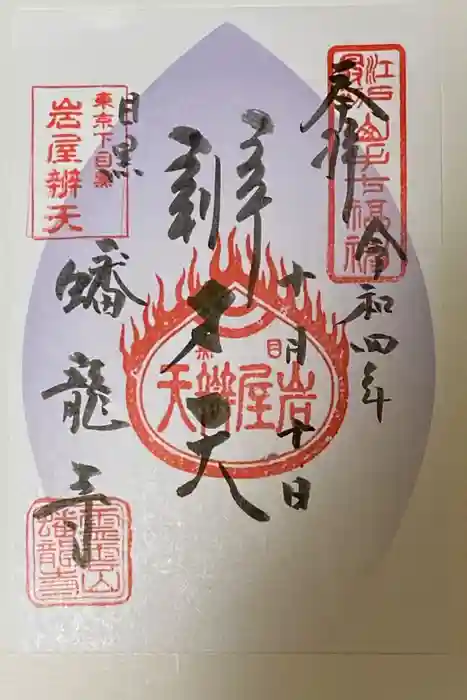 江戸最初山手七福神
奉拝
令和四年
十月十日
辨才天
目黒
岩屋辨天
東京下目黒
岩屋辨天
目黒
蟠龍寺
靈雲山
蟠龍寺